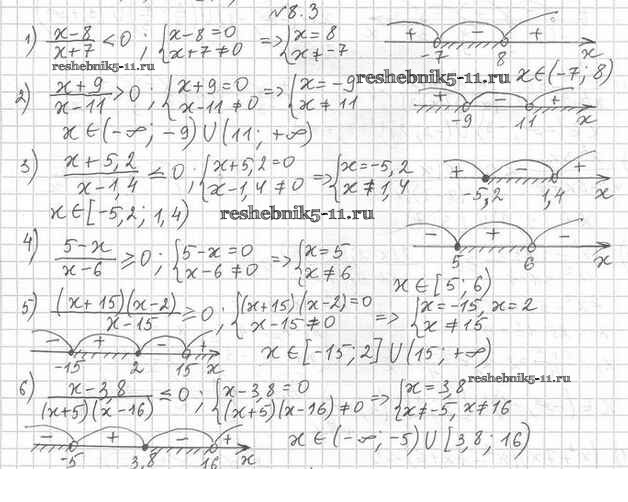 №8.3
1) (x-8)/(x+7) < 0 ; { x-8=0 ; x+7≠0 => { x=8 ; x≠-7
+ - + -7 8 x
x∈(-7; 8)
reshebnik5-11.ru
reshebnik5-11.ru
2) (x+9)/(x-11) > 0 ; { x+9=0 ; x-11≠0 => { x=-9 ; x≠11
+ - + -9 11 x
x∈(-∞; -9)∪(11; +∞)
3) (x+5,2)/(x-1,4) ≤ 0 ; { x+5,2=0 ; x-1,4≠0 => { x=-5,2 ; x≠1,4
+ - + -5,2 1,4 x
x∈[-5,2; 1,4)
reshebnik5-11.ru
4) (5-x)/(x-6) ≥ 0 ; { 5-x=0 ; x-6≠0 => { x=5 ; x≠6
- + - 5 6 x
x∈[5; 6)
5) (x+15)(x-2)/(x-15) ≥ 0 ; { (x+15)(x-2)=0 ; x-15≠0 => { x=-15, x=2 ; x≠15
- + - + -15 2 15 x
x∈[-15; 2]∪(15; +∞)
6) (x-3,8)/((x+5)(x-16)) ≤ 0 ; { x-3,8=0 ; (x+5)(x-16)≠0 => { x=3,8 ; x≠-5, x≠16
reshebnik5-11.ru
- + - + -5 3,8 16 x
x∈(-∞; -5)∪[3,8; 16)